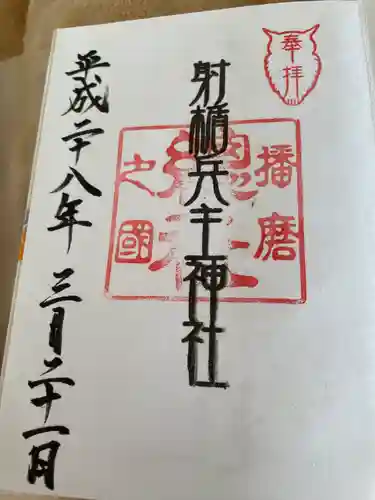 奉拝
播磨
總社
之國
射楯兵主神社
平成二十八年三月二十一日